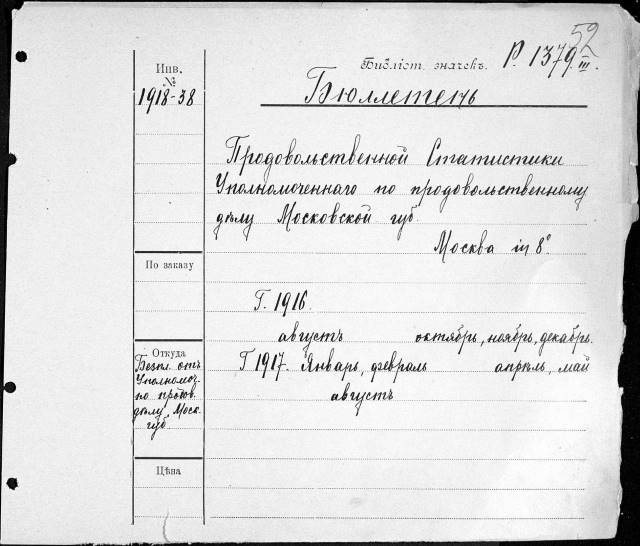 52
Библіот. значекъ. Р. 1379. III.
Инв.
№
1918-38
Бюллетень
Продовольственной Статистики
Уполномоченнаго по продовольственному
дѣлу Московской губ.
Москва in 8°
По заказу
Г. 1916.
августъ октябрь, ноябрь, декабрь.
Откуда
Безпл. отъ
Уполномоч.
по продов.
дѣлу Моск.
губ.
Г 1917. Январь, февраль апрѣль, май
августъ
Цѣна